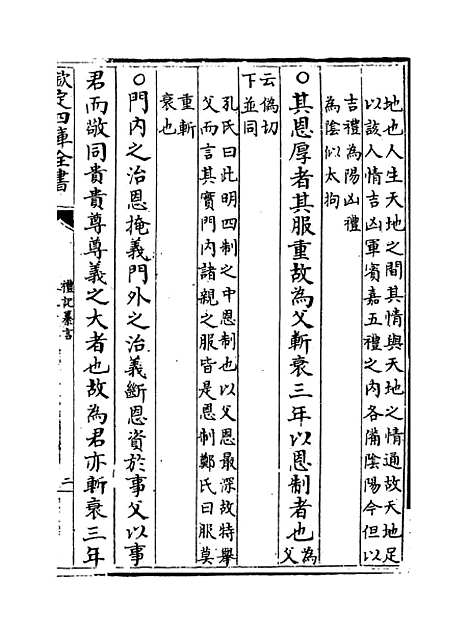 地也人生天地之間其情與天地之情通故天地足
以該人情吉凶軍賓嘉五禮之内各備陰陽今但以
吉禮為陽凶禮
為陰似太拘
○其恩厚者其服重故為父斬衰三年以恩制者也為父
云偽切
下並同
孔氏曰此明四制之中恩制也以父恩最深故特舉
父而言其實門内諸親之服皆是恩制鄭氏曰服莫
重斬
衰也
○門内之治恩掩義門外之治義斷恩資於事父以事
君而敬同貴貴尊尊義之大者也故為君亦斬衰三年
欽定四庫全書
禮記纂言
三